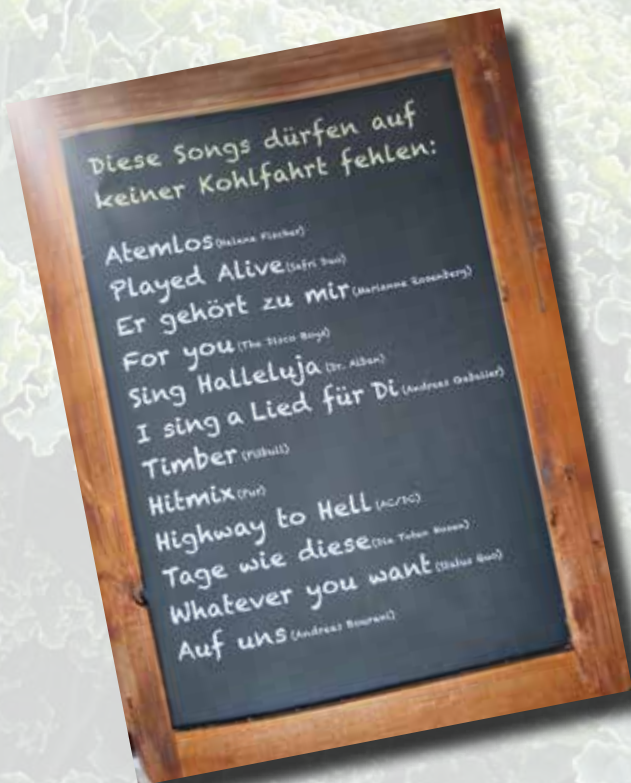 Diese Songs dürfen auf
keiner Kohlfahrt fehlen:
Atemlos (Helene Fischer)
Played Alive (Safri Duo)
Er gehört zu mir (Marianne Rosenberg)
For you (The Disco Boys)
Sing Halleluja (Dr. Alban)
I sing a Lied für Di (Andreas Gabalier)
Timber (Pitbull)
Hitmix (Pur)
Highway to Hell (AC/DC)
Tage wie diese (Die Toten Hosen)
Whatever you want (Status Quo)
Auf uns (Andreas Bourani)